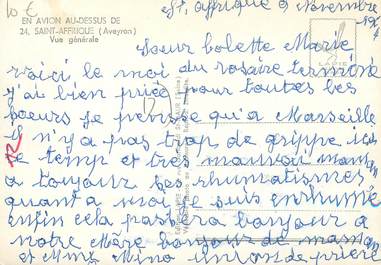 10 €
EN AVION AU-DESSUS DE
24, SAINT-AFFRIQUE (Aveyron)
Vue générale
St. Affrique 9 Novembre
Soeur Colette Marie
voici le moi du rosaire terminé
j'ai bien priée pour toutes les
soeurs je pense qu'a Marseille
il n'y a pas trop de grippe ici
le temp et très mauvai maman
a toujour ses rhumatismes
quant a moi je suis enrhumé
enfin cela passera bonjour a
notre Mère bonjour de maman
et Mme Mino union de prière
12